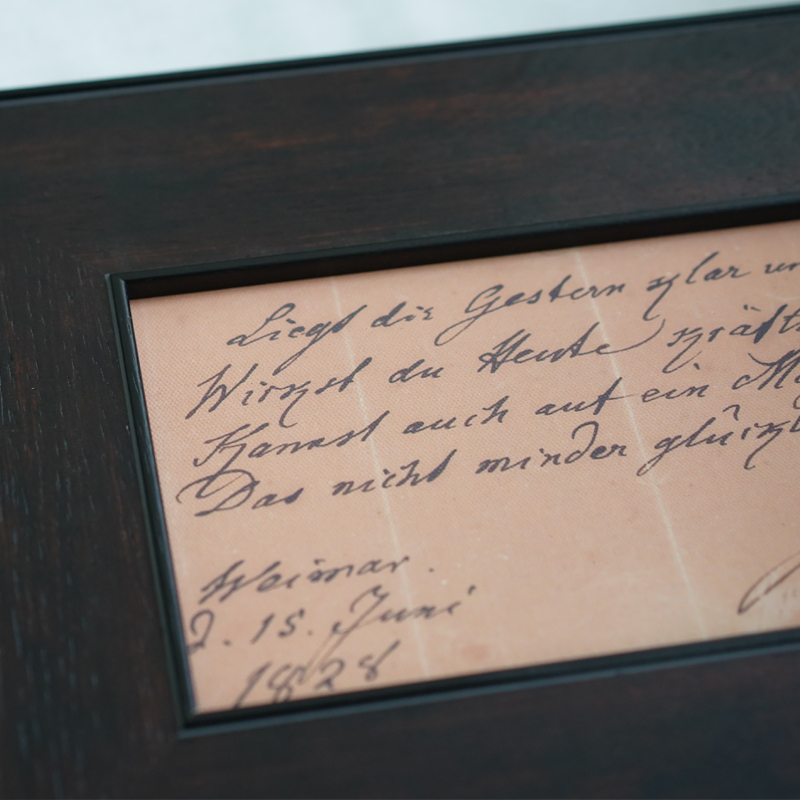 Liegt dir Gestern klar un
Wirkst du Heute kräft
Kannst auch auf ein Mo
Das nicht minder glückl
Weimar.
d. 15. Juni
1828